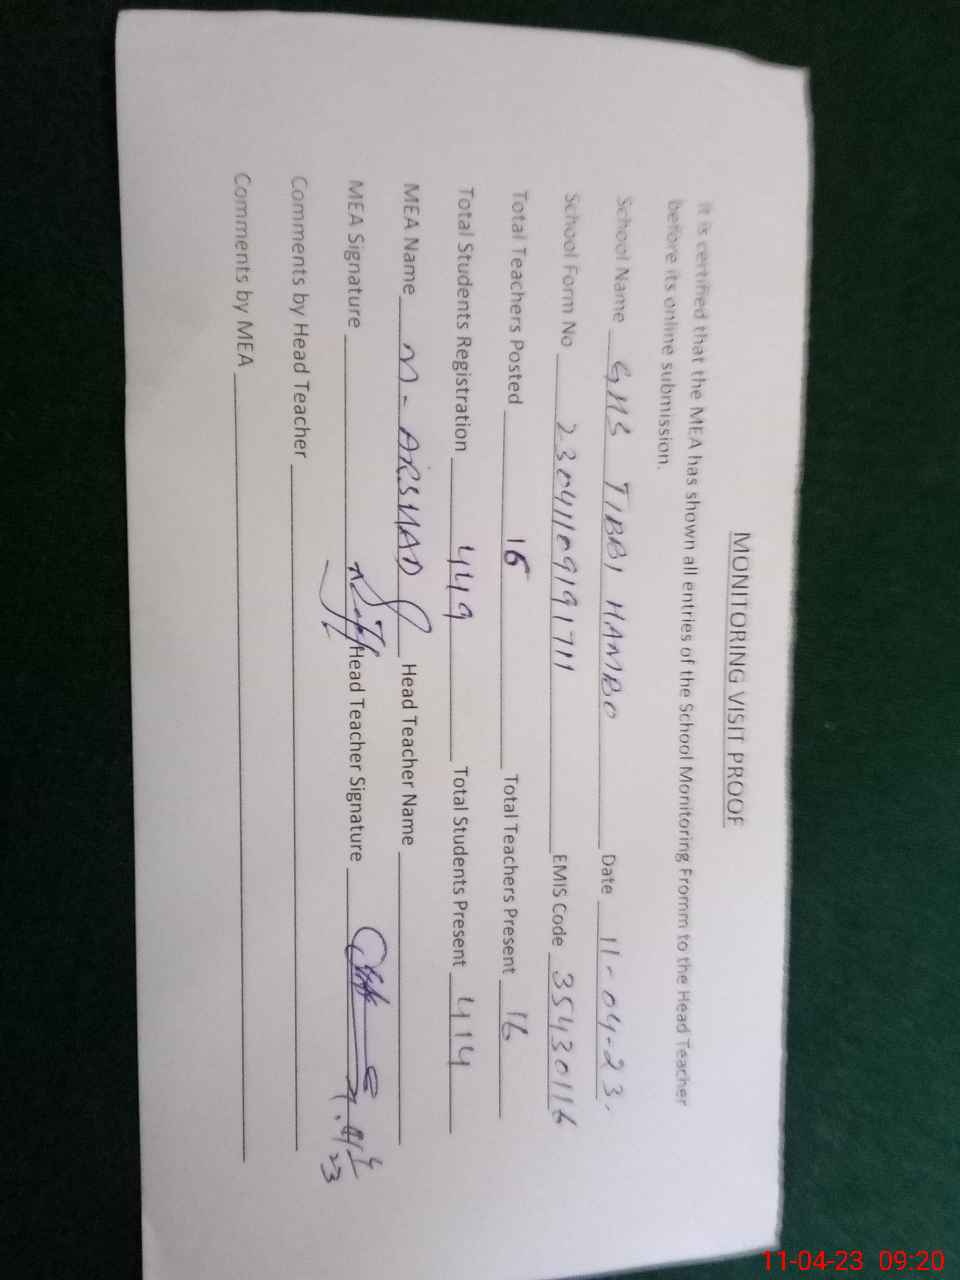 MONITORING VISIT PROOF
It is certified that the MEA has shown all entries of the School Monitoring Fromm to the Head Teacher
before its online submission.
School Name GHS TIBBI HAMBO Date 11-04-23.
School Form No 23041109191711 EMIS Code 35430116
Total Teachers Posted 16 Total Teachers Present 16
Total Students Registration 449 Total Students Present 414
MEA Name M- ARSHAD Head Teacher Name
MEA Signature Head Teacher Signature
Comments by Head Teacher
Comments by MEA
11-04-23 09:20